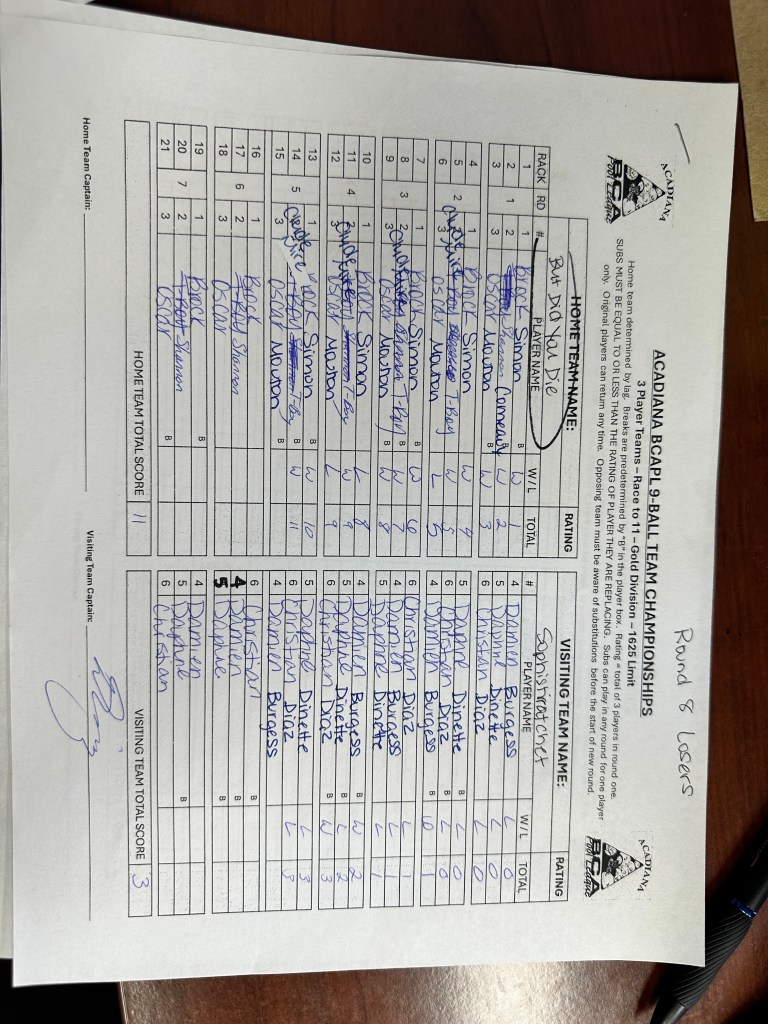 Round 8 Losers
ACADIANA
BCA
Pool League
ACADIANA BCAPL 9-BALL TEAM CHAMPIONSHIPS
3 Player Teams – Race to 11 – Gold Division – 1625 Limit
ACADIANA
BCA
Pool League
Home team determined by lag. Breaks are predetermined by "B" in the player box. Rating = total of 3 players in round one.
SUBS MUST BE EQUAL TO OR LESS THAN THE RATING OF PLAYER THEY ARE REPLACING. Subs can play in any round for one player
only. Original players can return any time. Opposing team must be aware of substitutions before the start of new round.
HOME TEAM NAME: RATING VISITING TEAM NAME: RATING
But Did You Die Sophistiratchet
RACK RD # PLAYER NAME W/L TOTAL # PLAYER NAME W/L TOTAL
1 1 Brock Simon B W 1 4 Damien Burgess L 0
2 1 2 Shannon Comeaux B W 2 5 Daphne Dinette L 0
3 3 Oscar Mouton B W 3 6 Christian Diaz L 0
4 1 Brock Simon W 4 5 Daphne Dinette B L 0
5 2 2 T-Boy W 5 6 Christian Diaz B L 0
6 3 Oscar Mouton L 5 4 Damien Burgess B W 1
7 1 Brock Simon B W 6 6 Christian Diaz L 1
8 3 2 T-Boy B W 7 4 Damien Burgess L 1
9 3 Oscar Mouton B W 8 5 Daphne Dinette L 1
10 1 Brock Simon L 8 4 Damien Burgess B W 2
11 4 2 T-Boy W 9 5 Daphne Dinette B L 2
12 3 Oscar Mouton L 9 6 Christian Diaz B W 3
13 1 Brock Simon B W 10 5 Daphne Dinette L 3
14 5 2 T-Boy B W 11 6 Christian Diaz L 3
15 3 Oscar Mouton B 4 Damien Burgess
16 1 Brock 6 Christian B
17 6 2 T-Boy Shannon 4 Damien B
18 3 Oscar 5 Daphne B
19 1 Brock B 4 Damien
20 7 2 Shannon 5 Daphne B
21 3 Oscar B 6 Christian
HOME TEAM TOTAL SCORE 11 VISITING TEAM TOTAL SCORE 3
Home Team Captain: Visiting Team Captain: